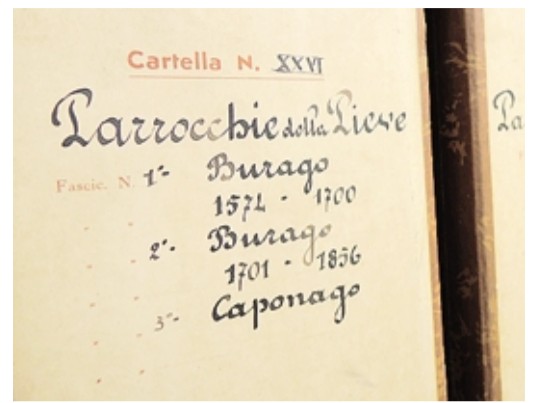 Cartella N. XXVI
Parrocchie della Pieve
Fascic. N. 1°- Burago
1571 - 1700
2°- Burago
1701 - 1856
3°- Caponago
Pa